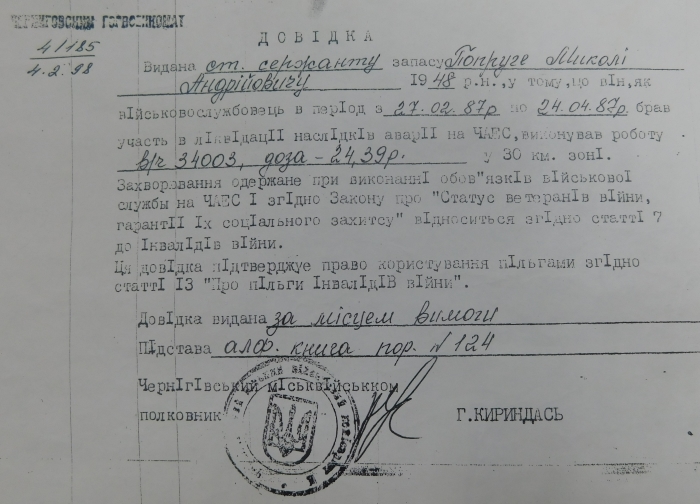 ЧЕРНИГОВСКИЙ ГОРВОЕНКОМАТ
4/185
4.2.98
ДОВІДКА
Видана ст. сержанту запасу Попруге Миколі
Андрійовичу 1948 р.н.,у тому,що він,як
військовослужбовець в період з 27.02.87р по 24.04.87р брав
участь в ліквідації наслідків аварії на ЧАЕС,виконував роботу
в/ч 34003, доза - 24,39р. у 30 км. зоні.
Захворювання одержане при виконанні обов"язків військової
служби на ЧАЕС і згідно Закону про "Статус ветеранів війни,
гарантії їх соціального захитсу" відноситься згідно статті 7
до інвалідів війни.
Ця довідка підтверджує право користування пільгами згідно
статті ІЗ "Про пільги інвалідів війни".
Довідка видана за місцем вимоги
Підстава алф. книга пор. N 124
Чернігівський міськвійськком
полковник Г.КИРИНДАСЬ